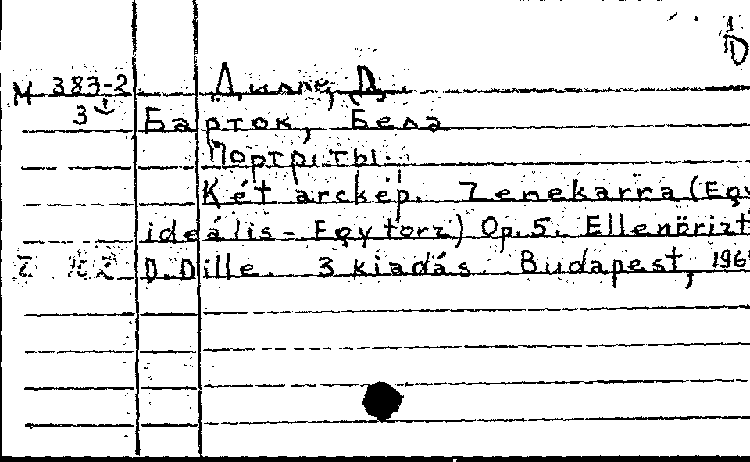 М 383-2 Дилле, Д.
3 Барток, Бела
Портреты.
Két arckép. Zenekarra (Egy
ideális - Egy torz) Op. 5. Ellenörizt
D. Dille. 3 kiadás. Budapest, 196